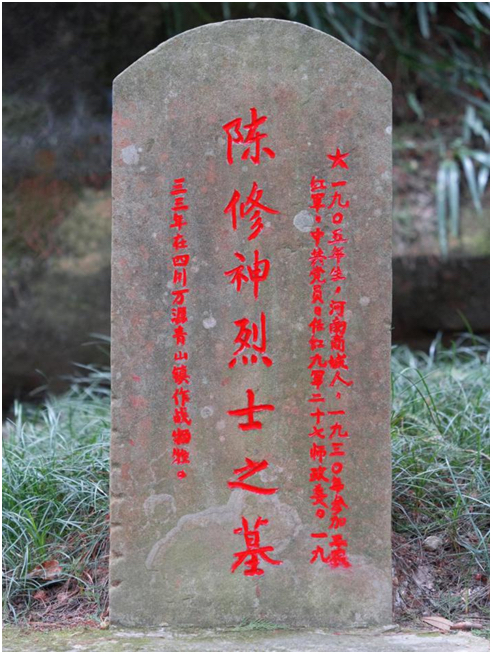 ★一九〇五年生，河南商城人。一九三〇年参加
红军，中共党员。任红九军二十七师政委。一九
陈修神烈士之墓
三三年在四川万源青山镇作战牺牲。